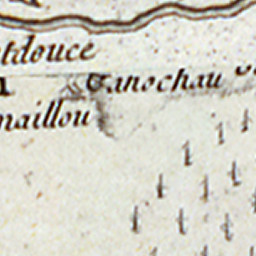 tdouce
Canochau
maillou